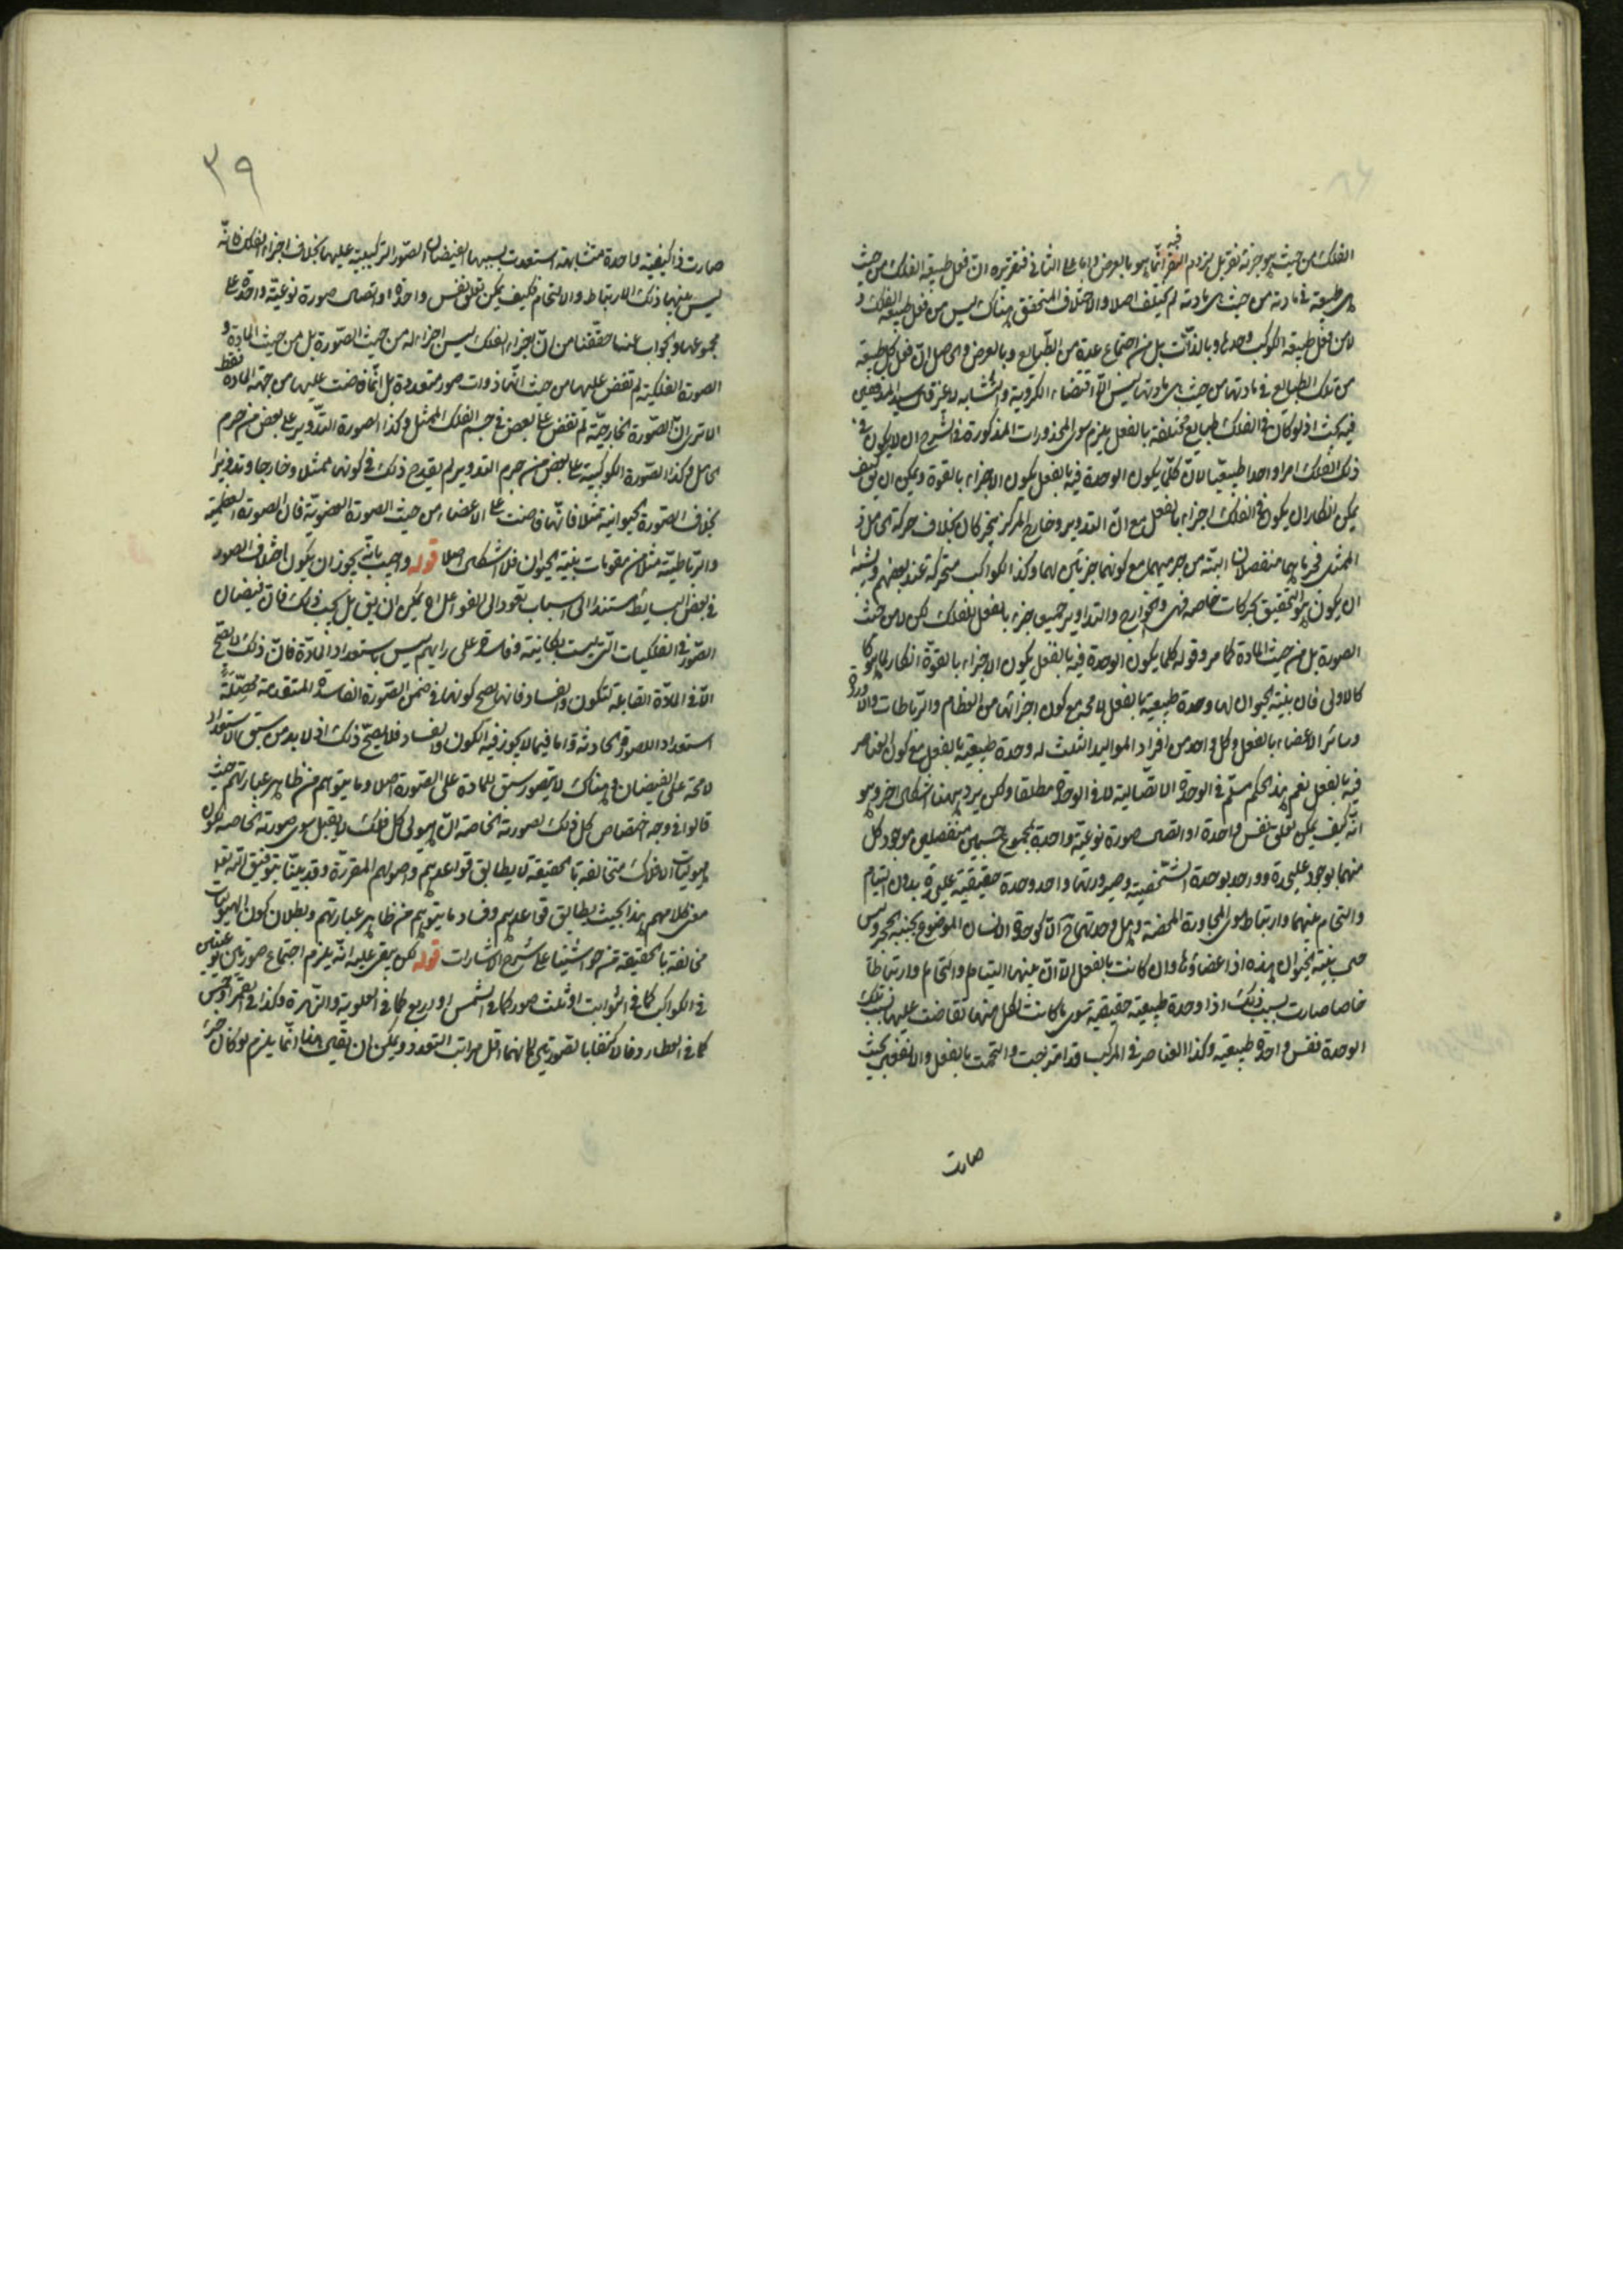 الفلك من حيث هو جزئه نفر بل يزدم النقر فيه انما هو بالعرض واما على الثانى فتقريره ان فعل طبيعة الفلك من حيث
هى طبيعة فى مادته من حيث هى مادته لم يختلف اصلا والاختلاف المتحقق هناك ليس من فعل طبيعة الفلك و
لا من فعل طبيعة الكوكب وحدها وبالذات بل من اجتماع عدة من الطبايع وبالعرض والحاصل ان فعل كل طبيعة
من تلك الطبايع فى مادتها من حيث هى مادتها ليس الا اقتضاء الكروية والتشابه لا غير قال سيد المدققين
فيه بحث اذ لو كان فى الفلك طبايع مختلفة بالفعل يلزم سوى المحذورات المذكورة فى الشرح ان لا يكون
ذلك الفلك امرا واحدا طبيعيا لان كلما يكون الوحدة فيه بالفعل يكون الاجزاء بالقوة ويمكن ان يق كيف
يمكن انكار ان يكون فى الفلك اجزاء بالفعل مع ان التدوير وخارج المركز يتحركان بخلاف حركة الحامل و
الممثل فجرماهما منفصلان البتة من جرميهما مع كونهما جزئين لهما وكذا الكواكب متحركة عند بعضهم ويشبه
ان يكون هو التحقيق بحركات خاصة فهى والخوارج والتداوير جميعا جزء بالفعل للفلك لكن لا من حيث
الصورة بل من حيث المادة كما مر وقوله كلما يكون الوحدة فيه بالفعل يكون الاجزاء بالقوة انكار لما هو كا
كالاولى فان بنية الحيوان لها وحدة طبيعية بالفعل لا محة مع كون اجزائها من العظام والرباطات والاوردة
وسائر الاعضاء بالفعل وكل واحد من افراد المواليد الثلث له وحدة طبيعية بالفعل مع كون العناصر
فيه بالفعل نعم هذا الحكم مسلم فى الوحدة الاتصالية لا فى الوحدة مطلقا ولكن يرد ههنا اشكال اخر وهو
انه كيف يمكن تعلق نفس واحدة او اتصال صورة نوعية واحدة بمجموع جسمين منفصلين موجود كل
منهما بوجود عليحدة وواحد بوحدة الشخصية وصيرورتهما واحد وحدة حقيقية عليحدة بدون التيام
والتحام بينهما وارتباط سوى المجاورة المحضة وهل وحدتهما ح الا كوحدة الانسان الموضوع بجنبه الحجر وليس
حال بنية الحيوان هذه اذ اعضاؤها وان كانت بالفعل الا ان بينهما التياما والتحاما وارتباطا
خاصا صارت بسبب ذلك اذا وحدة طبيعية حقيقية سوى ما كانت لكل منهما تفاضت عليها بتلك
الوحدة نفس واحدة طبيعية وكذا العناصر فى المركب قد امتزجت والتحمت بالفعل والانفعال بحيث
صارت
٣٩
صارت ذا كيفية واحدة متشابهة استعدت بسببها لفيضان الصور التركيبية عليها بخلاف اجزاء الفلك فانه
ليس بينها ذلك الارتباط والالتحام فكيف يمكن تعلق نفس واحدة او اتصال صورة نوعية واحدة على
مجموعها والجواب عنها حققنا من ان اجزاء الفلك ليس اجزاء له من حيث الصورة بل من حيث المادة و
الصورة الفلكية لم تفض عليها من حيث انها ذوات صور متعددة بل انما فاضت عليها من جهة المادة فقط
الا ترى ان الصورة الخارجية لم تفض على بعض فى جسم الفلك الممثل وكذا الصورة التدوير على بعض من جرم
الحامل وكذا الصورة الكوكبية على بعض من جرم التدوير لم يقدح ذلك فى كونها ممثلا وخارجا وتدويرا
بخلاف الصورة الحيوانية مثلا فانها فاضت على الاعضاء من حيث الصورة العضوية فان الصورة العظمية
والرباطية مثلا من مقومات بنية الحيوان فلا اشكال اصلا قوله واجيب بانه يجوز ان يكون اختلاف الصور
فى بعض البسايط مستندا الى اسباب تعود الى الفواعل اه يمكن ان يق بل يجب ذلك فان فيضان
الصور فى الفلكيات التى ليست بكائنة وفاسدة على رايهم ليس باستعداد المادة فان ذلك لا يصح
الا فى المادة القابلة للتكون والفساد فانها يصح كونها فى ضمن الصورة الفاسدة المتقدمة محصلة
استعداد الصورة الحادثة واما فيما لا يجوز فيه الكون والفساد فلا يصح ذلك اذ لا بد من سبق الاستعداد
لا محة على الفيضان وهناك لا يتصور سبق للمادة على الصورة اصلا وما يتوهم من ظاهر عبارتهم حيث
قالوا فى وجه اختصاص كل فلك بصورته الخاصة ان هيولى كل فلك لا يقبل سوى صورته الخاصة لكون
هيوليات الافلاك متخالفة بالحقيقة لا يطابق قواعدهم واصولهم المقررة وقد بينا بتوفيق الله تعالى
معنى كلامهم هذا بحيث يطابق قواعدهم وفساد ما يتوهم من ظاهر عبارتهم وبطلان كون الهيوليات
متخالفة بالحقيقة من حواشينا على شرح الاشارات قوله لكن يبقى عليه انه يلزم اجتماع صورتين نوعيتين
فى الكواكب كما فى الثوابت او ثلث صور كما فى الشمس او اربع كما فى العلوية والزهرة وكذا فى القمر او خمس
كما فى العطارد فالاكتفاء بالصورتين لانهما اقل مراتب التعدد ويمكن ان يقال هذا انما يلزم لو كان جزء